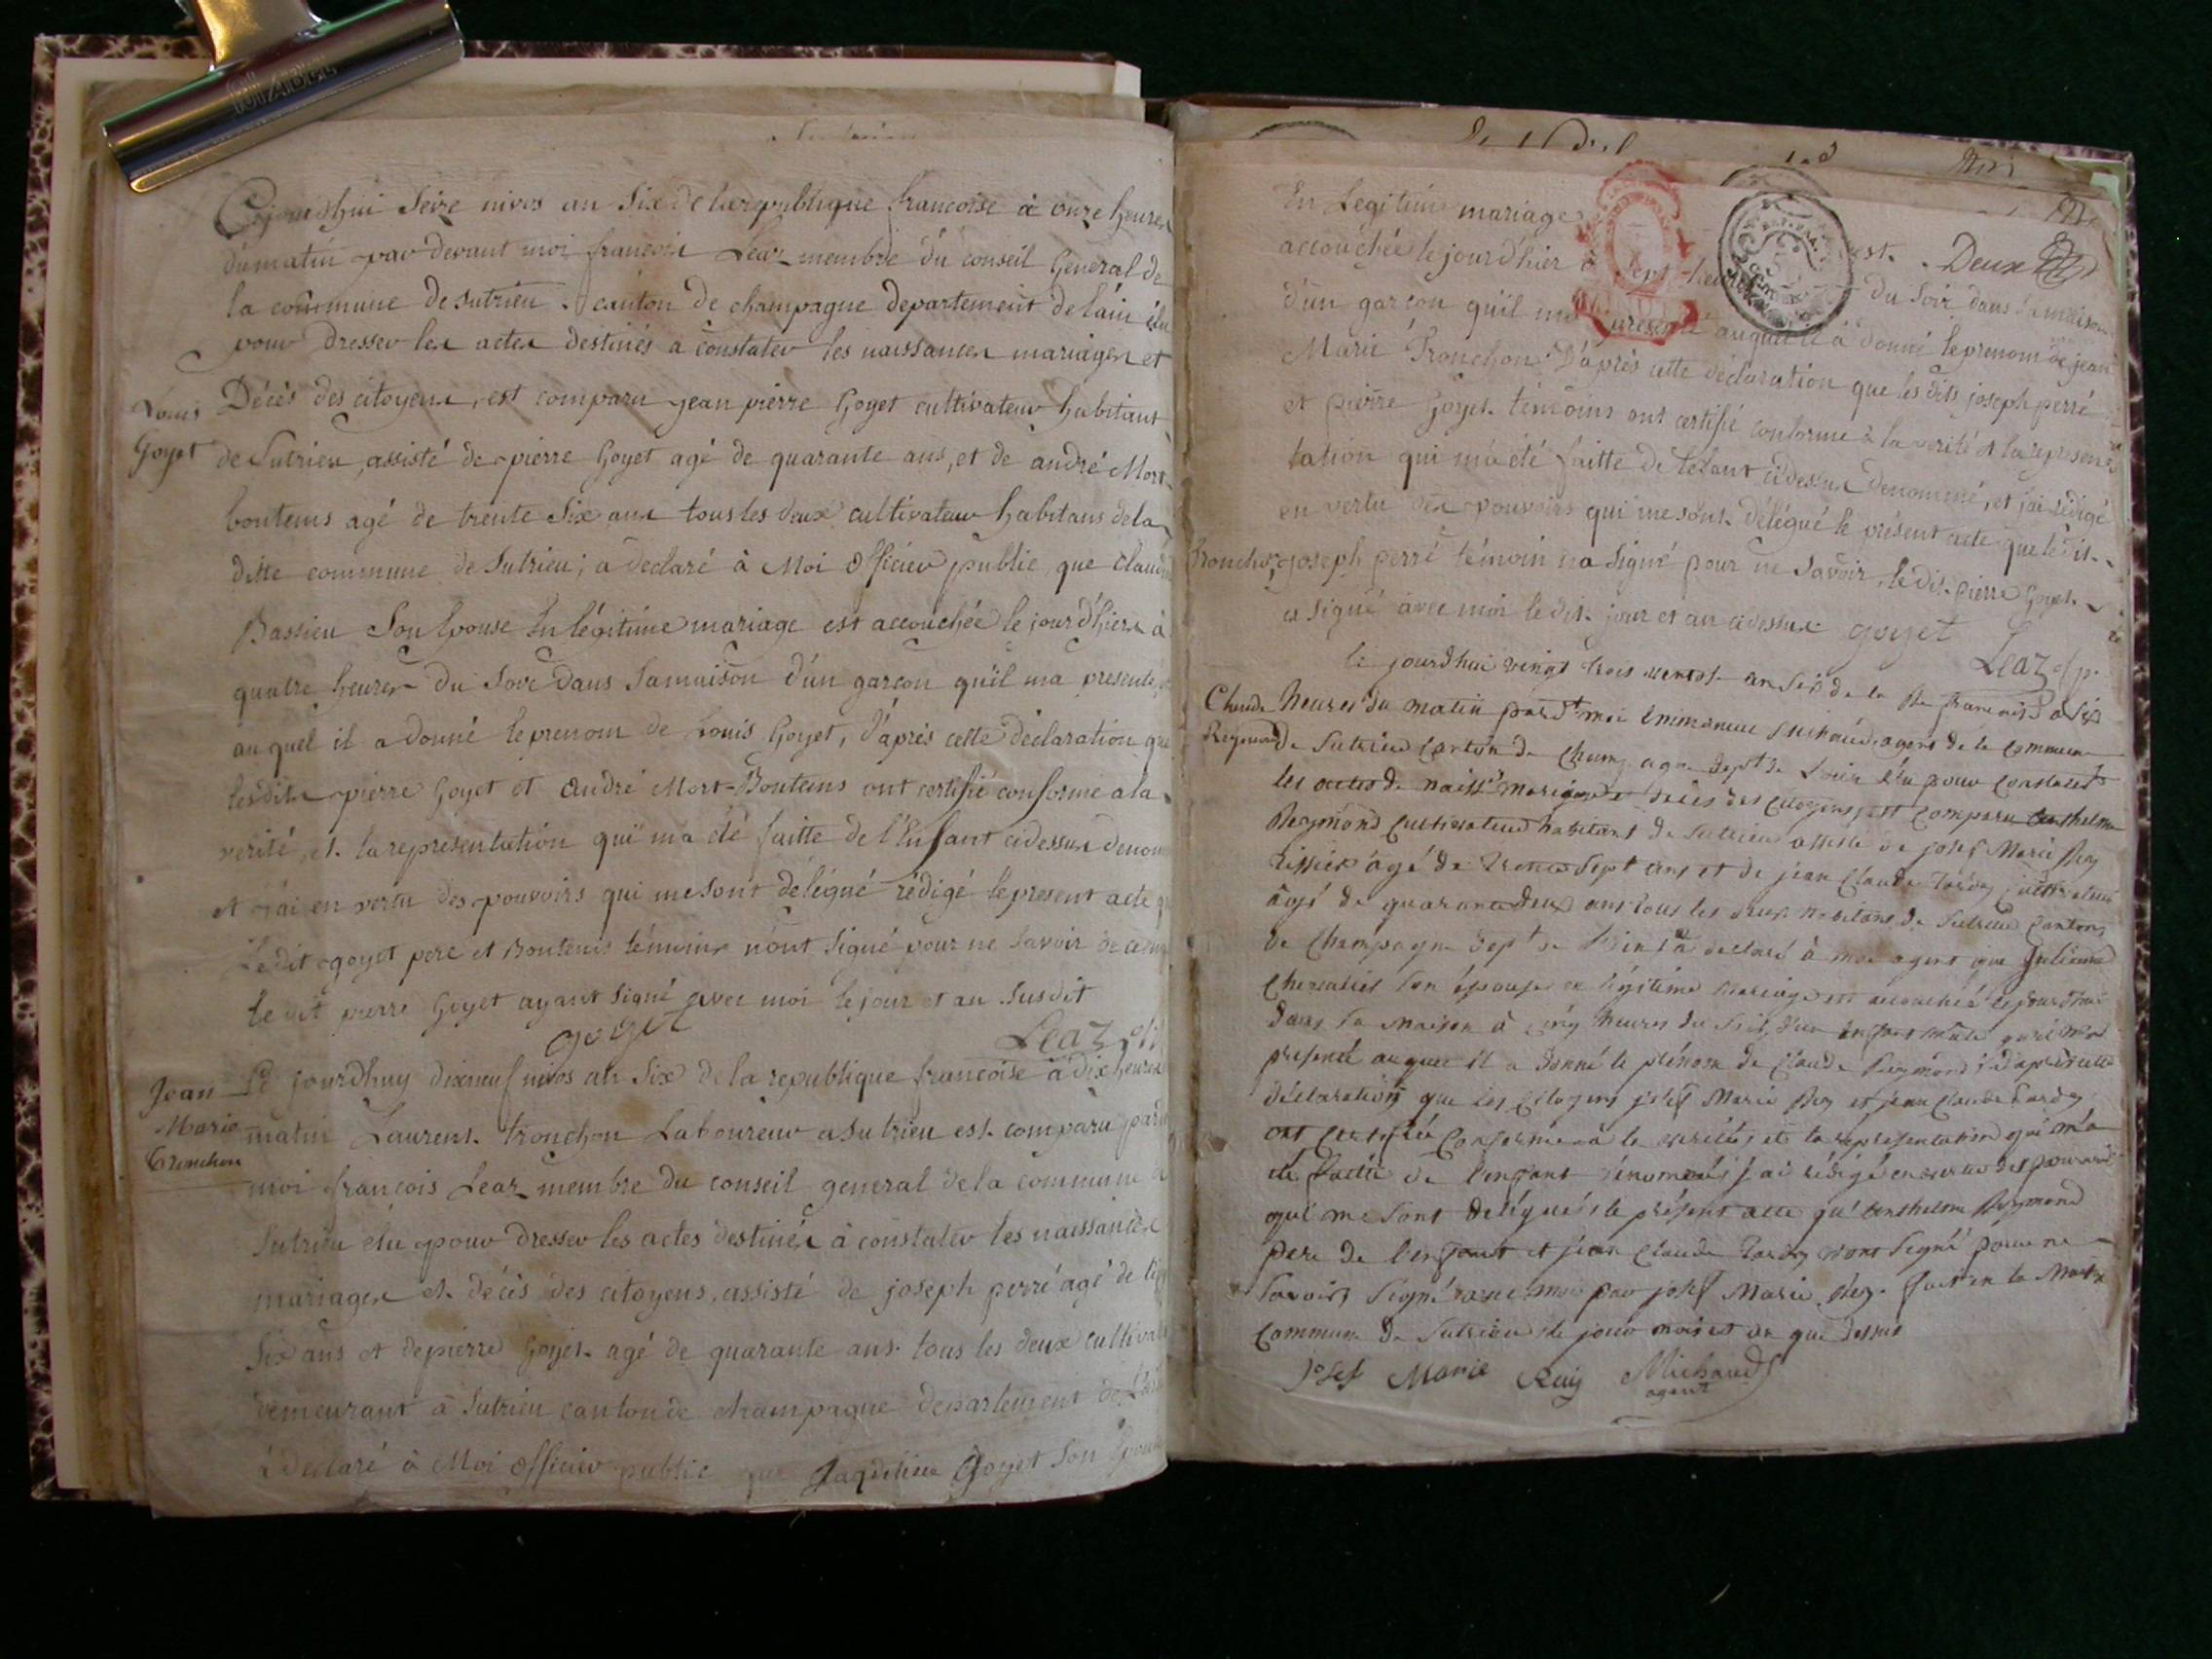 Cejourdhui Seize nivos an Six De la republique francoise à onze heures
dumatin par devant moi francois Leaz membre du conseil General de
la commune de Sutrieu canton de champagne departement de lain élu
pour Dresser les actes destinés a constater les naissances mariages et
Décès des citoyens, est comparu jean pierre Goyet cultivateur habitant
Louis
Goyet
de Sutrieu, assisté de pierre Goyet agé de quarante ans, et de andré Mort
boutems agé de trente Six ans tous les deux cultivateur habitans dela
ditte commune de Sutrieu; a declaré à Moi Officier public, que
Bassieu Son Epouse En légitime mariage est accouchée le jour d'hiere à
quatre heures du Sore Dans Samaison d'un garcon qu'il ma presente
au quel il a donné le prenom de Louis Goyet, d'aprés cette déclaration que
lesdits pierre Goyet et andré Mort-Boutems ont certifié conforme a la
verité, et la representation qui ma été faitte de l'Enfant cidessus
et j'ai en vertu des pouvoirs qui me sont délégué rédigé le present acte
Le dit goyet pere et Boutems témoins n'ont Signé pour ne Savoir
le dit pierre Goyet ayant Signé avec moi le jour et an Susdit
goyet Leaz
Jean
Marie
Tronchon
Le jourdhuy dixneuf nivos an Six de la republique francoise a dix heures
matin Laurent tronchon Laboureur a Sutrieu est comparu
moi francois Leaz membre du conseil general de la commune
Sutrieu élu pour dresser les actes destinés à constater les naissances
mariages et décés des citoyens, assisté de joseph perré agé de
Six ans et de pierre Goyet agé de quarante ans tous les deux
demeurant a Sutrieu canton de champagne departement de
a declaré à Moi Officier public que Goyet Son
En Legitime mariage est Deux
accouchée le jour d'hier à Sept heures du Soir dans Samaison
d'un garcon qu'il ma presenté auquel il à donné le prenom de jean
Marie Tronchon D'aprés cette déclaration que les dits joseph perré
et pierre Goyet témoins ont certifié conforme à la verité et la represen
tation qui m'a été faitte de lefant cidessus denommé, et j'ai rédigé
en vertu des pouvoirs qui me sont délégué le présent acte que le dit
Tronchon, joseph perré témoin na Signé pour ne Savoir, le dit pierre Goyet
a Signé avec moi le dit jour et an cidessus goyet
Leaz
le jourdhui vingt trois ventose an Six de la Rr francaise a Six
Claude
Reymond
heures du matin moi Michaud agent de la commune
de Sutrieu canton de Champagne dept de élu pour constater
les actes de naiss mariages et décès des citoyens est comparu Anthelme
Reymond cultivateur habitant de Sutrieu assisté de josef Marie Rey
agé de trente Sept ans et de jean Claude Tardy
agé de quarante deux ans tous les deux habitans de Sutrieu canton
de Champagne dept de a declaré à moi agent que
Chevalier Son épouse en légitime mariage est accouchée
dans Sa maison à cinq heures du Soir d'un enfant mâle qu'il m'a
presenté auquel il a donné le prénom de Claude Reymond d'aprés cette
déclaration que les citoyens josef Marie Rey et jean Claude Tardy
ont certifiée conforme à la verité, et la representation qui m'a
été faitte de l'enfant dénommé j'ai rédigé en vertu des pouvoirs
qui me Sont delégués le présent acte qu'Anthelme Reymond
pere de l'enfant et jean Claude Tardy n'ont Signé pour ne
Savoir, Signé avec moi par josef Marie Rey. fait en la
commune de Sutrieu le jour mois et an que dessus
Josef Marie Rey Michaud
agent